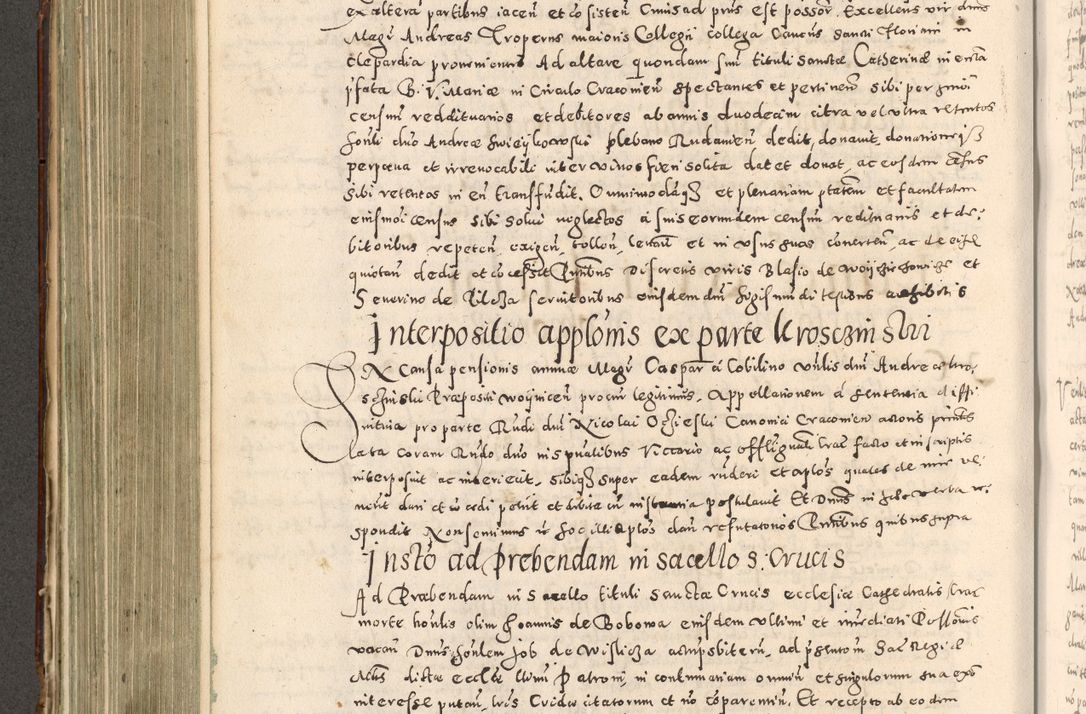 ex altera partibus iaceñ et cõsisteñ Cuius ad prñs est possor. Excellens vir dñus
Magr̃ Andreas Troperus maioris Collegii collega Canoñs sancti Floriani in
Clepardia provenientiũ Ad altare quondam sim tituli sanctæ Catherinæ in ecctia
pfata B. V. Mariæ in Circulo Cracovieñ spectantes et pertineñ sibi per
censum reddituarios et debitores ab annis duodecim citra vel ultra retentos
honli dño Andreæ plebano Rudameñ dedit, donavit, donationeqȝ
perpetua et irrevocabili inter vivos fieri solita dat et donat, ac eosdem
sibi retentos in eũ transfudit. Omnimodaqȝ et plenariam ptatem et facultatem
eiusmoi census sibi solui neglectos a suis eorumdem censuũ redituariis et de:
bitoribus repeteñ, exigeñ, tolleñ, levañ et in usus suos converteñ, ac de eisd
quietañ dedit et cõcessit Pntibus Discretis viris Blasio de et
Severino de Pilcza servitoribus eiusdem dñi Sigismundi testibus
Interpositio applõnis ex parte Kroscziński
Ex causa pensionis annuæ Magr̃ Caspar a Cobilino vñlis dñi Andreæ Kro,
schinski Præpositi woijniceñ procur legitimus. Appellationem a sententia diffi
nitiva pro parte Rñdi dñi Nicolai Canonici Cracovieñ actoris
lata coram Rñdo dño in spualibus Vicario ac officiali gnali Crac facto et in scriptis
interposuit ac interiecit. sibiqȝ super eadem et aplos quales de iure ve:
nerit dari et cõcedi petiit et debita cũ instantia postulavit Et Dñus in hoc verba re
spondit Non sentimus hoc illi aplos dañ refutatorios Pntibus quibus supra
Insto ad prebendam in sacello s: Crucis
Ad Præbendam in Sacello tituli Sanctæ Crucis ecclesiæ Cathedralis Crac
morte honlis olim Joannis de Bobowa eiusdem ultimi et imediati Possoris
vacañ Dñus honlem Job de Wislicza ad pñtaton̄ Sac Regiæ
dictæ eccliæ Patroni, in contumatiam omniũ et singulorum sua
interesse putañ, lris Cridæ citatorum et nõ cõpareñtiũ. Et recepto ab eodem